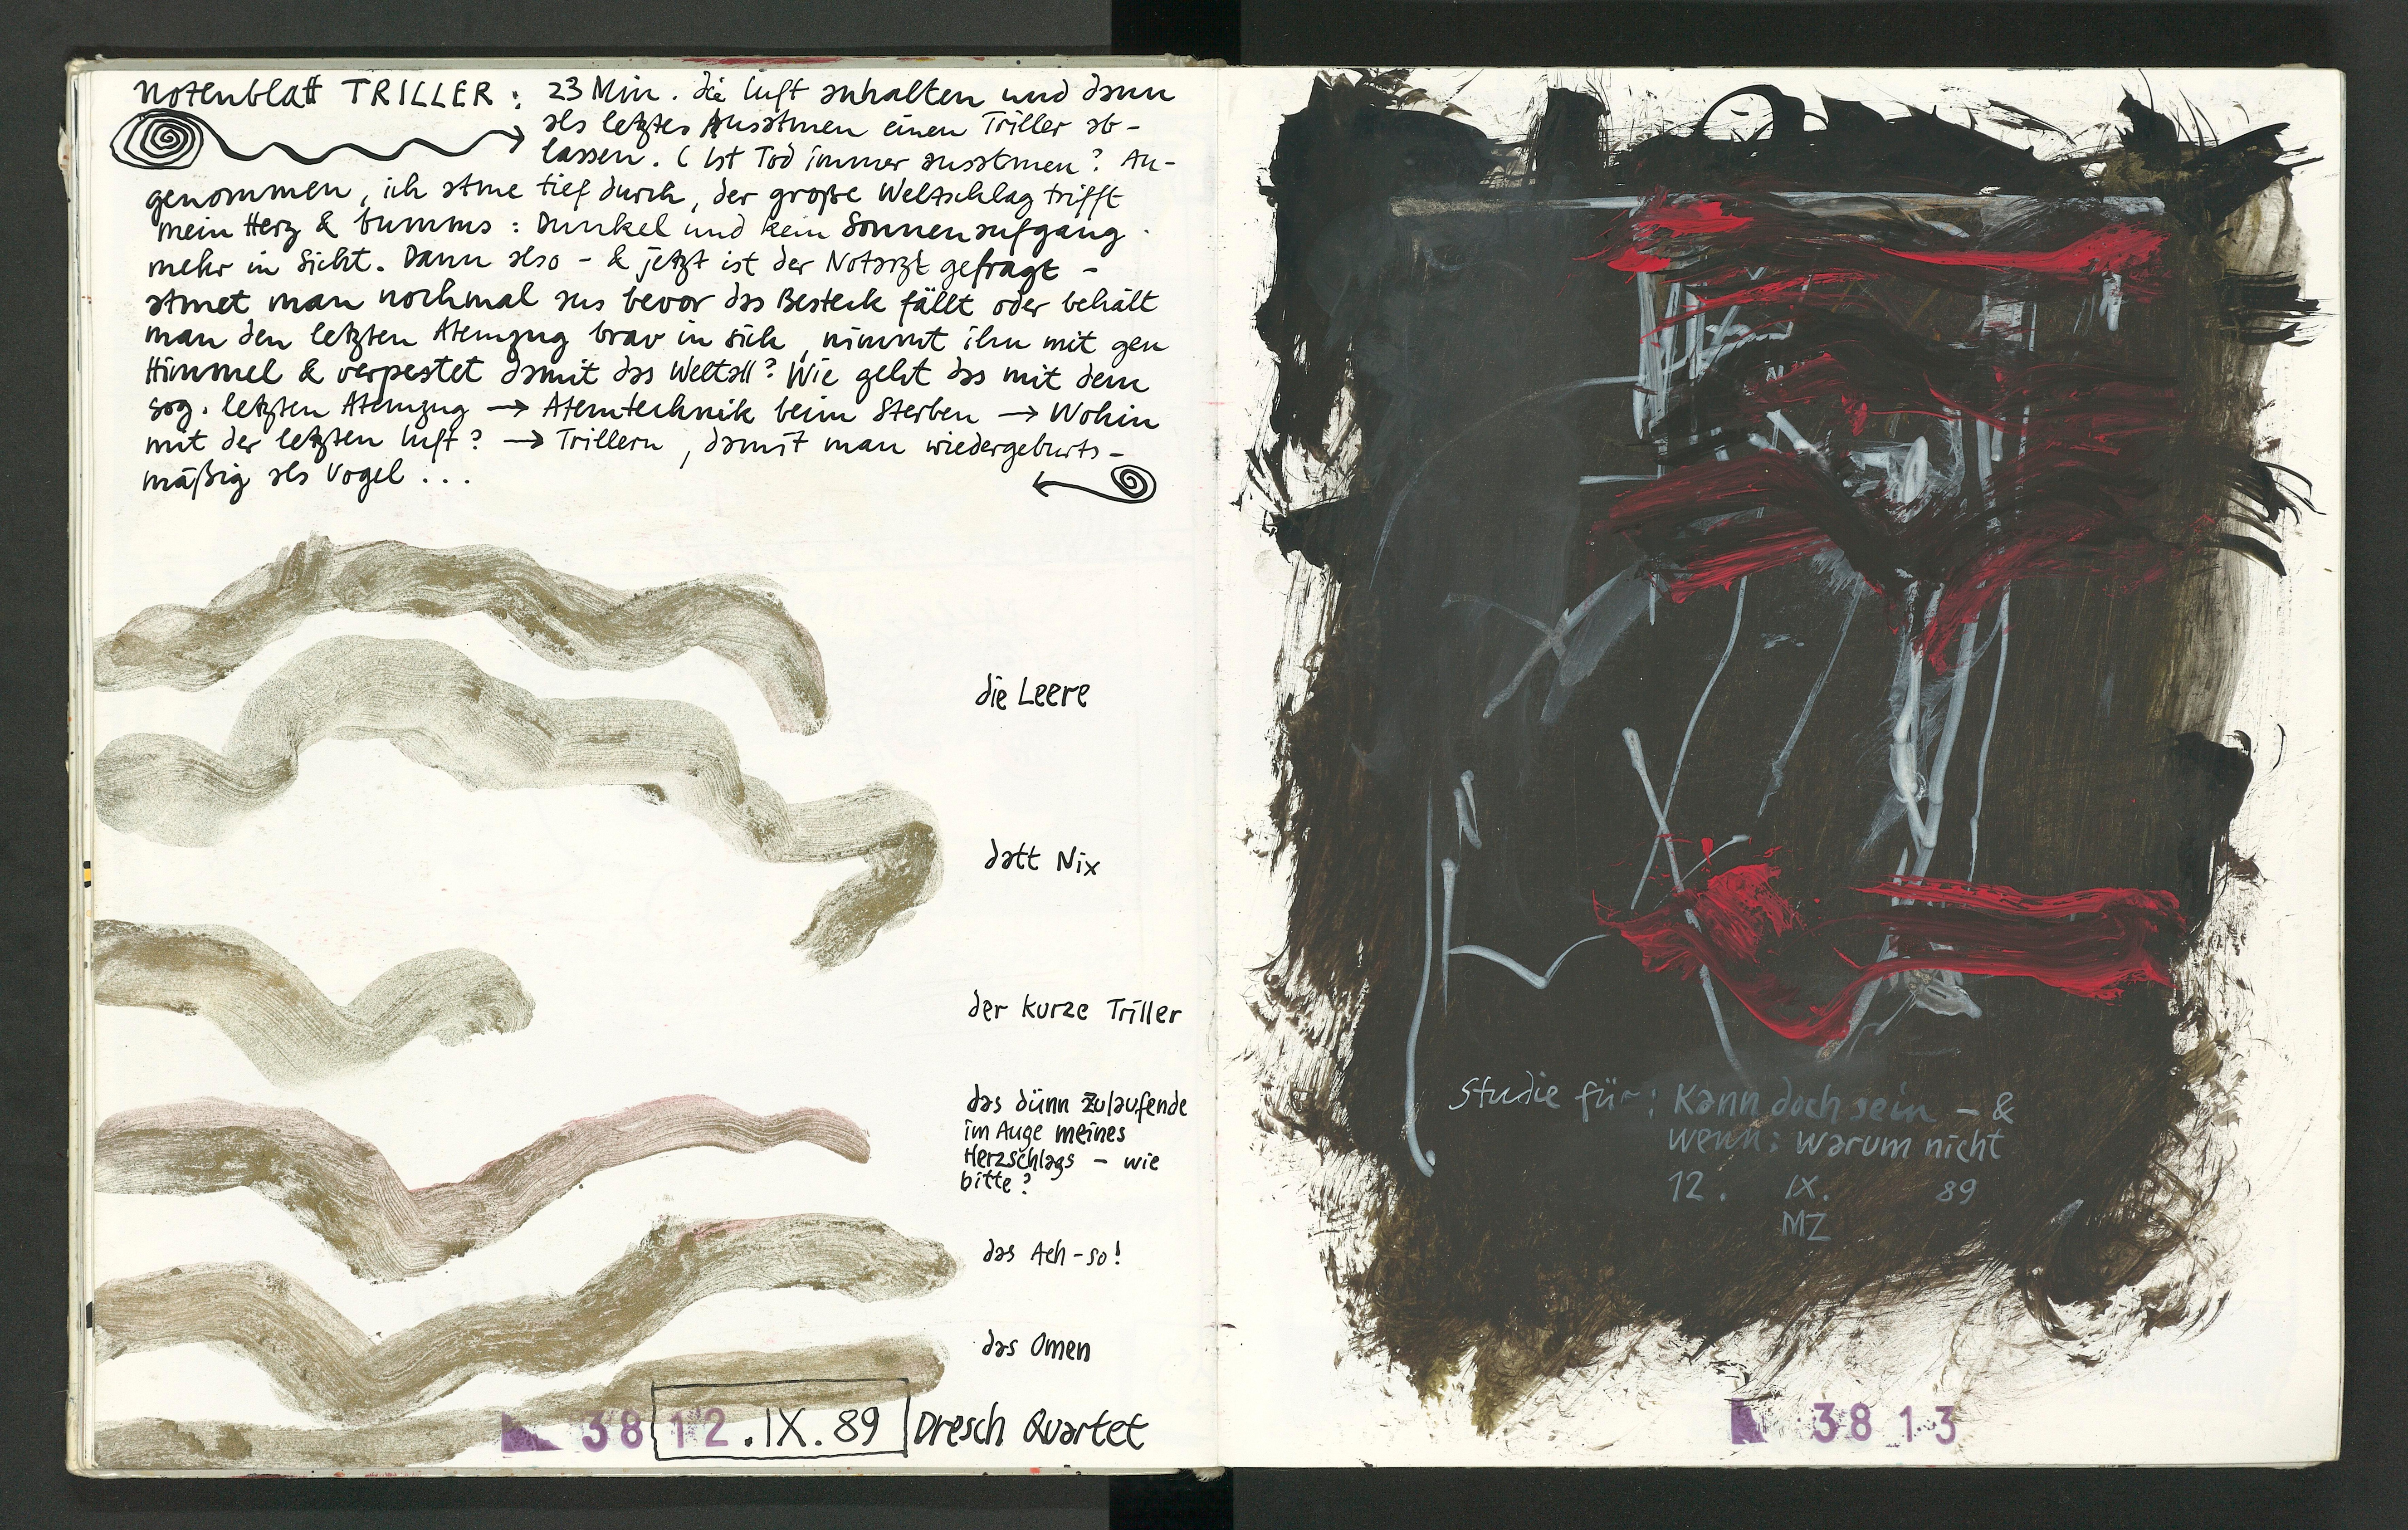 Notenblatt TRILLER : 23 Min. die Luft anhalten und dann
als letztes Ausatmen einen Triller ab-
lassen. ( Ist Tod immer ausatmen? An-
genommen, ich atme tief durch, der große Weltschlag trifft
mein Herz & bumms : Dunkel und kein Sonnenaufgang
mehr in Sicht. Dann also - & jetzt ist der Notarzt gefragt -
atmet man nochmal aus bevor das Besteck fällt oder behält
man den letzten Atemzug brav in sich, nimmt ihn mit gen
Himmel & verpestet damit das Weltall? Wie geht das mit dem
sog. letzten Atemzug → Atemtechnik beim Sterben → Wohin
mit der letzten Luft? → Trillern, damit man wiedergeburts-
mäßig als Vogel ...
die Leere
datt Nix
der kurze Triller
das dünn zulaufende
im Auge meines
Herzschlags - wie
bitte?
das Ach-so!
das Omen
38 12 .IX. 89 Dresch Quartet
Studie für: Kann doch sein - &
wenn: warum nicht
12. IX. 89
MZ
38 13